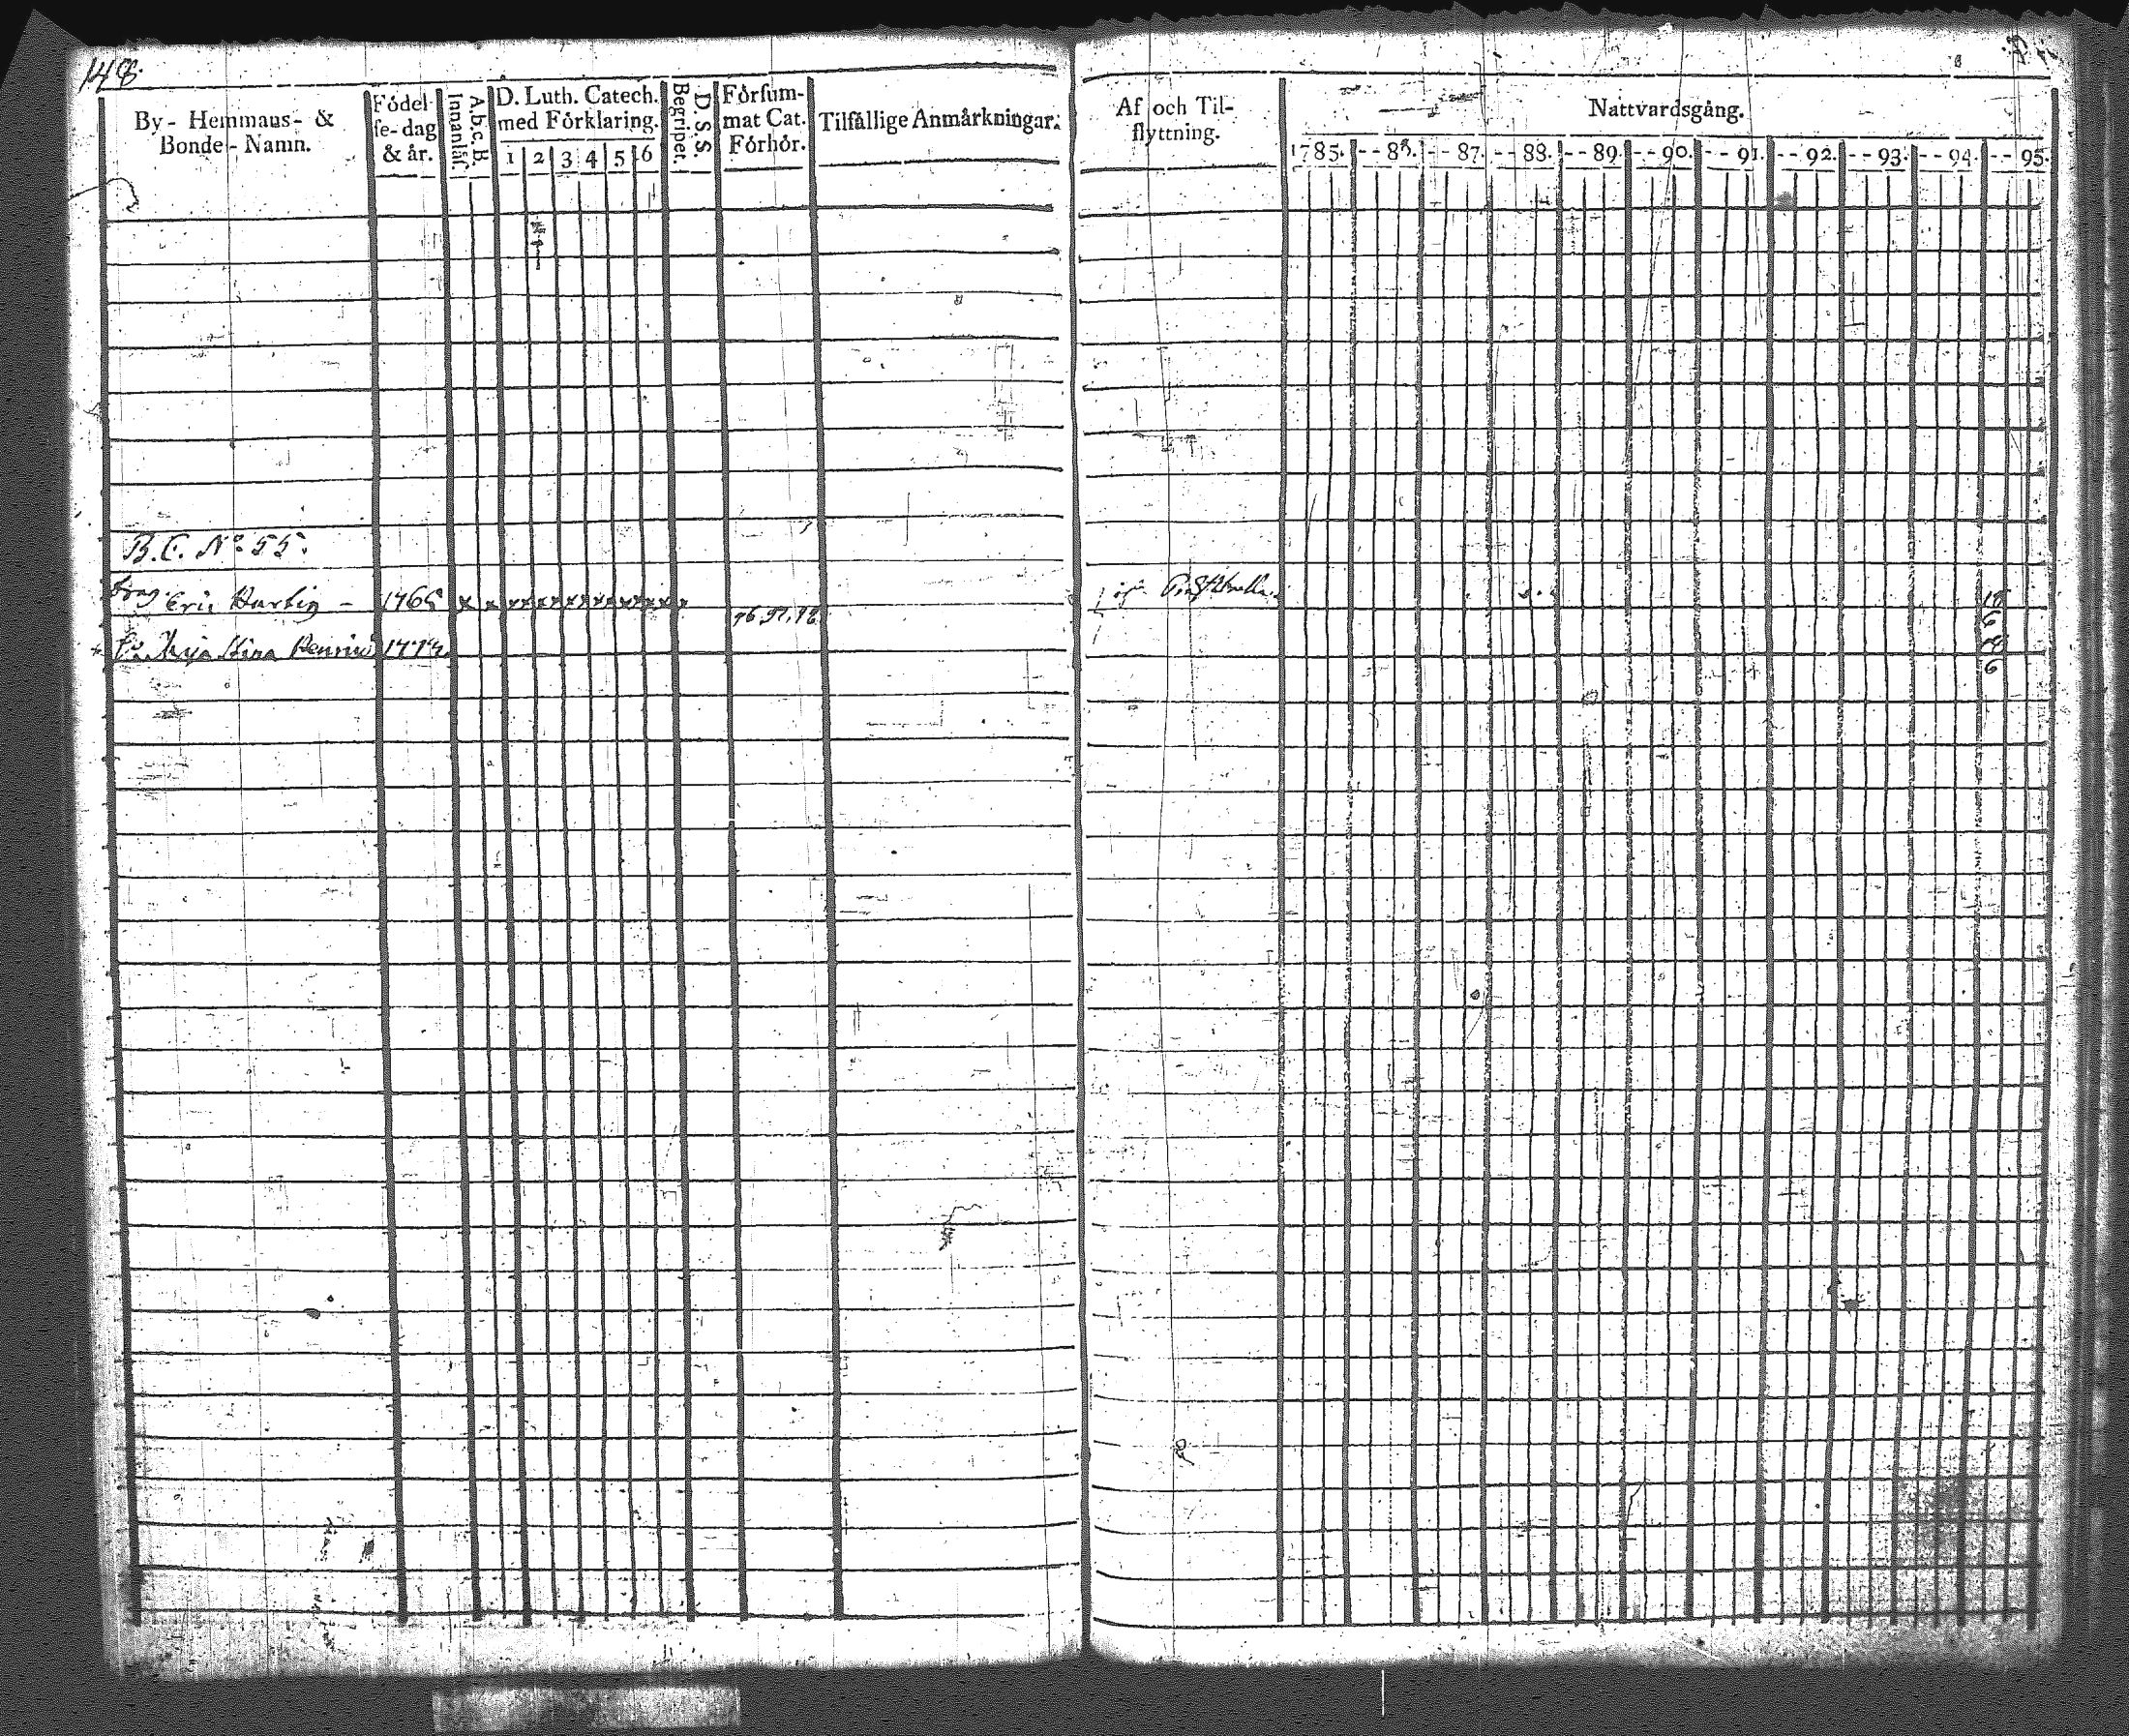 148.
By- Hemmans- &
Bonde- Namn.
Födel-
se-dag
& år.
A.b.c.B.
Innanläs.
D. Luth. Catech.
med Förklaring.
1 2 3 4 5 6
D. S. S.
Begripet.
Försum-
mat Cat.
Förhör.
Tilfällige Anmärkningar.
B.C. No. 55.
Drag. Eric Hartig - 1765 x x x x x x x x x x
96, 97, 98.
Maja Stina 1774
Af och Til-
flyttning.
Nattvardsgång.
1785. - - 86. - - 87. - - 88. - - 89. - - 90. - - 91. - - 92. - - 93. - - 94. - - 95.
18
6
18
6